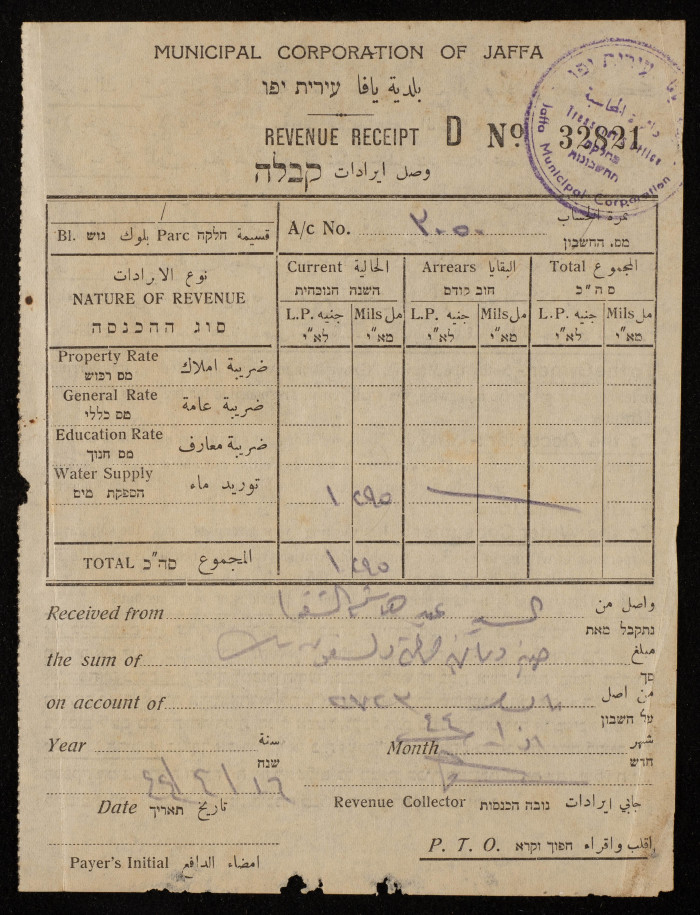 MUNICIPAL CORPORATION OF JAFFA
بلدية يافا עירית יפו
REVENUE RECEIPT D Nº 32821
وصل ايرادات קבלה
עירית יפו
دائرة المحاسبة
Treasurer Office
מחלקת
חשבונות
Jaffa Municipal Corporation
Bl. גוש بلوك Parc חלקה قسيمة
A/c No. ٣٠٥٠ نمرة الحساب
מס. החשבון
نوع الايرادات
NATURE OF REVENUE
סוג ההכנסה
Current الحالية
השנה הנוכחית
Arrears البقايا
חוב קודם
Total المجموع
סה"כ
L.P. جنيه Mils مل L.P. جنيه Mils مل L.P. جنيه Mils مل
לא"י מא"י לא"י מא"י לא"י מא"י
Property Rate ضريبة املاك
מס רכוש
General Rate ضريبة عامة
מס כללי
Education Rate ضريبة معارف
מס חנוך
Water Supply توريد ماء
הספקת מים ١ ٢٩٥
TOTAL סה"כ المجموع ١ ٢٩٥
Received from السيد واصل من
נתקבל מאת
the sum of مبلغ
סך
on account of ٢٧٢٣ من اصل
על חשבון
Year سنة
שנת
Month ٤٤ شهر
חדש
Date تاريخ תאריך
Revenue Collector גובה הכנסות جابي ايرادات
P. T. O. הפוך וקרא اقلب واقراء
Payer's Initial امضاء الدافع